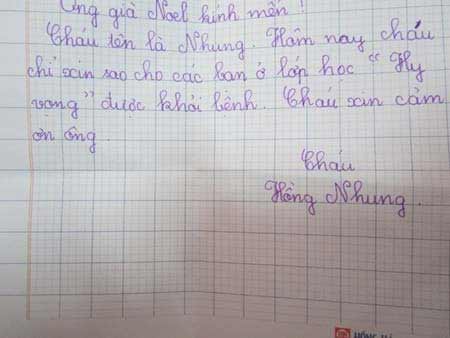 Ông già Noel kính mến !
Cháu tên là Nhung. Hôm nay cháu
chỉ xin sao cho các bạn ở lớp học “Hy
vọng” được khỏi bệnh. Cháu xin cảm
ơn ông.
Cháu
Hồng Nhung.